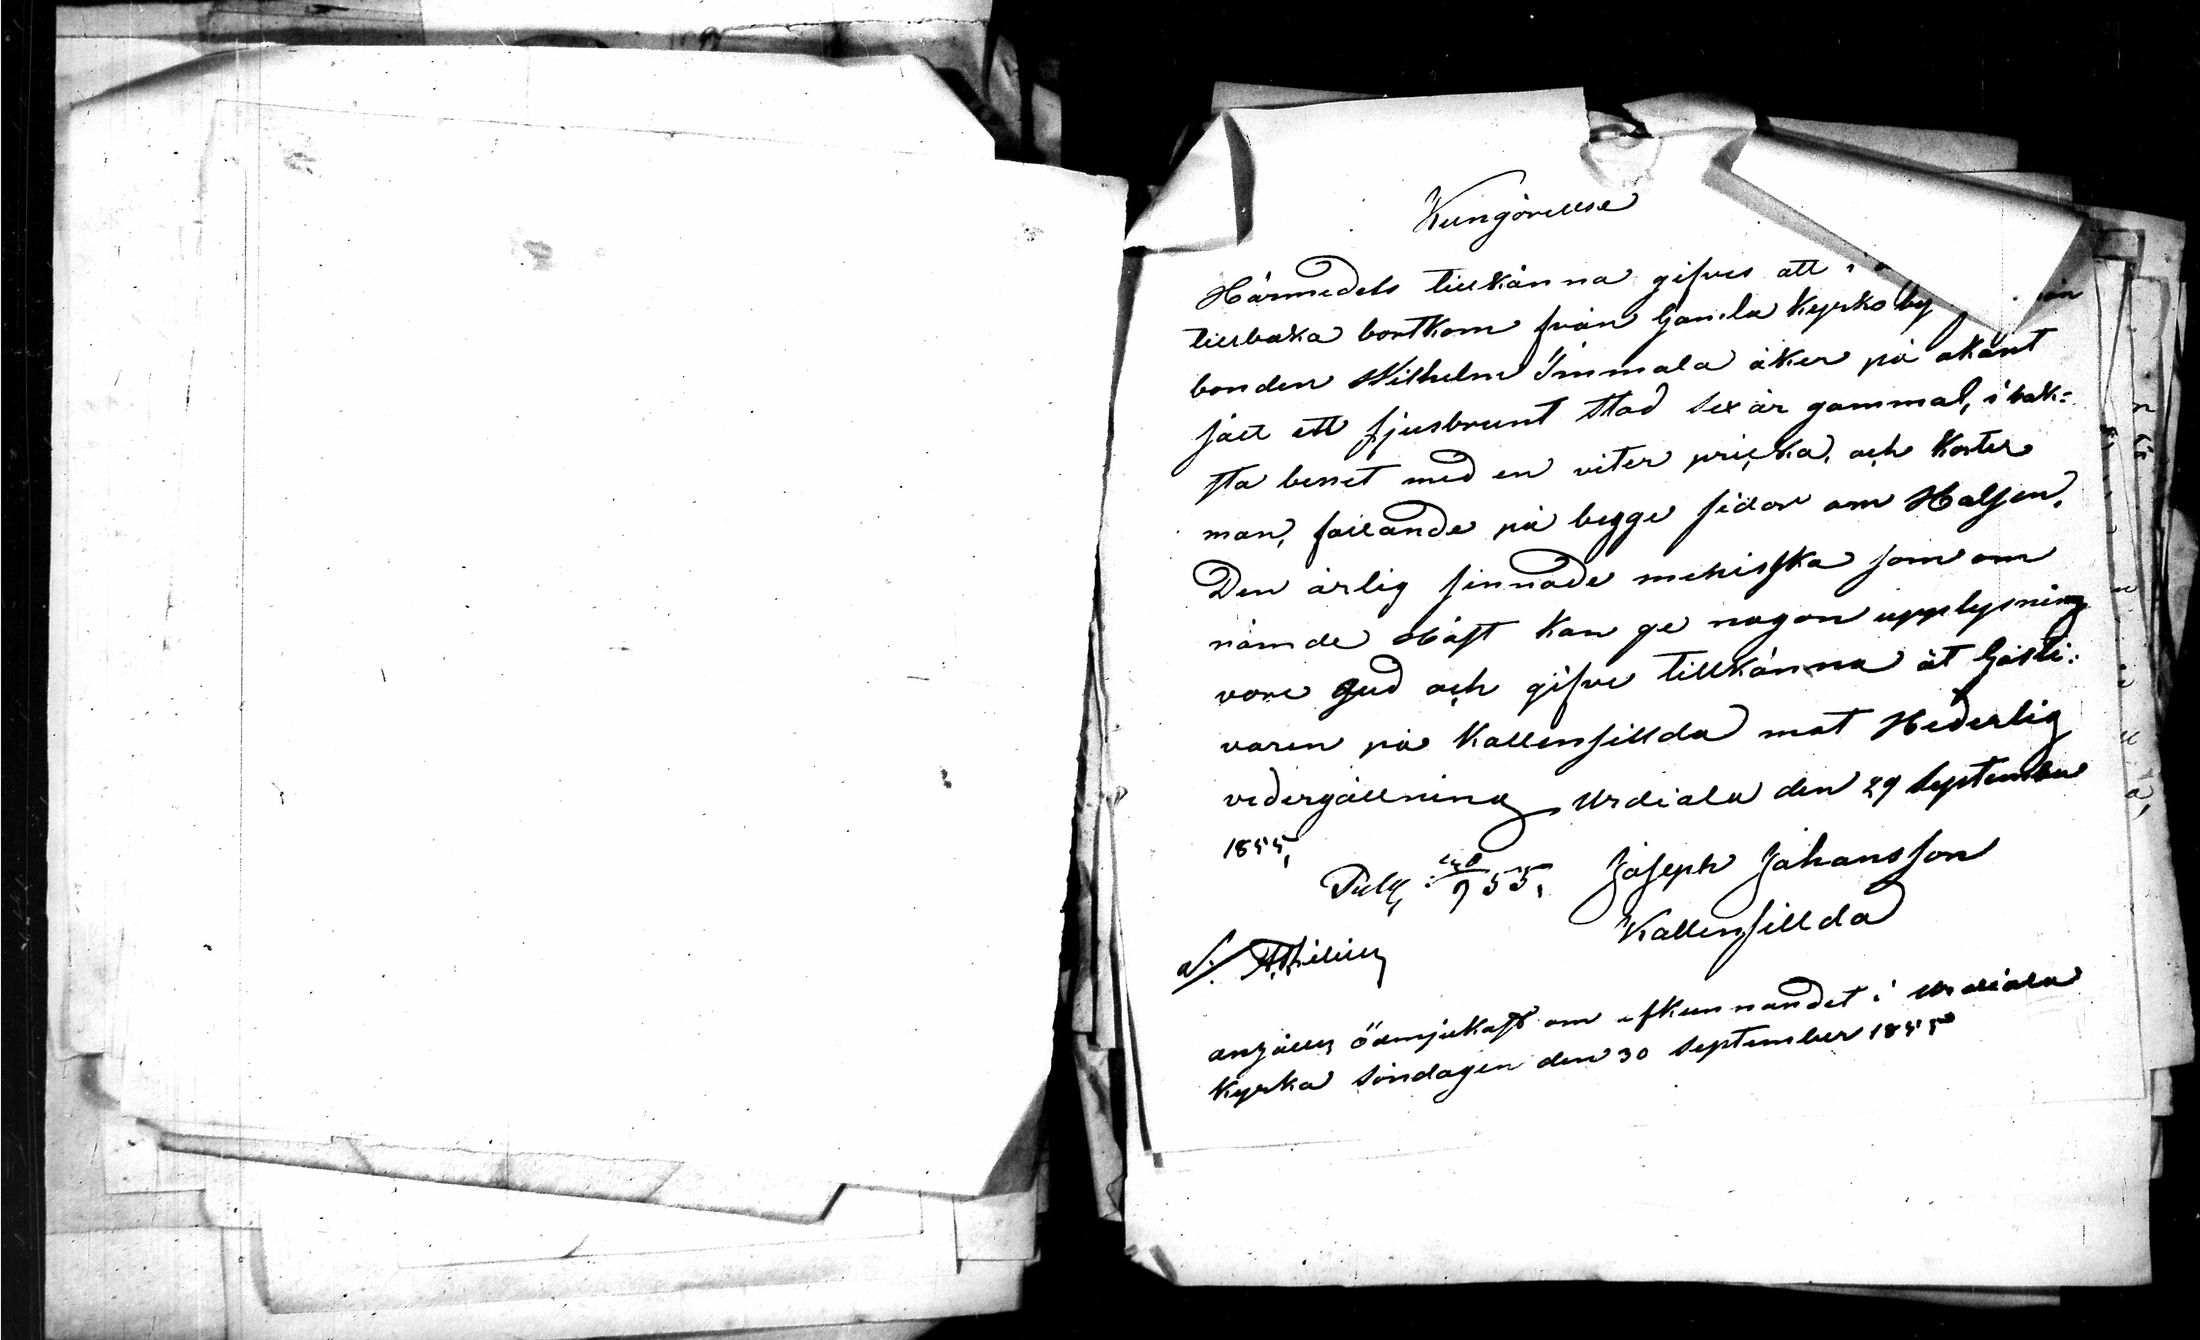 Kungörellse
Härmedels tillkänna gifves att i
tillbaka bortkom från Gamla kyrko by
bonden Wilhelm Immala åker på okänt
sätt ett fjusbrunt Stod sex år gammal, i bak=
sta benet med en viter pricka, och korter
man, fallande på begge sidor om Halsen.
Den ärlig sinnade menisska som om
nämde Häst kan ge nagon upplysning
vore gud och gifve tillkänna åt Gästi-
varen på Kallensillda mot Hederlig
vedergällning, Urdiala den 29 September
1855,
Publ. 30/9 55. Joseph Johansson
Kallensillda
anhålls ödmjukast om afkunnandet i Urdiala
kyrka söndagen den 30 September 1855